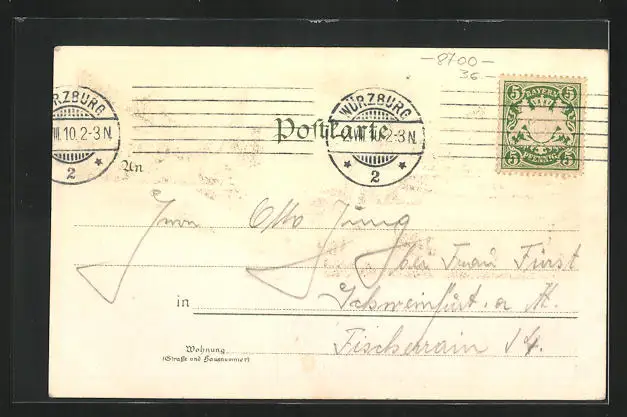 —8700—
36.—
WÜRZBURG
VIII.10.2-3N.
2
WÜRZBURG
VIII.10.2-3N.
2
5 BAYERN 5
5 PFENNIG 5
Postkarte
An
Herrn Otto Jung
bei Frau Fürst
in Schweinfurt a M.
Fischerrain 14.
Wohnung
(Straße und Hausnummer)